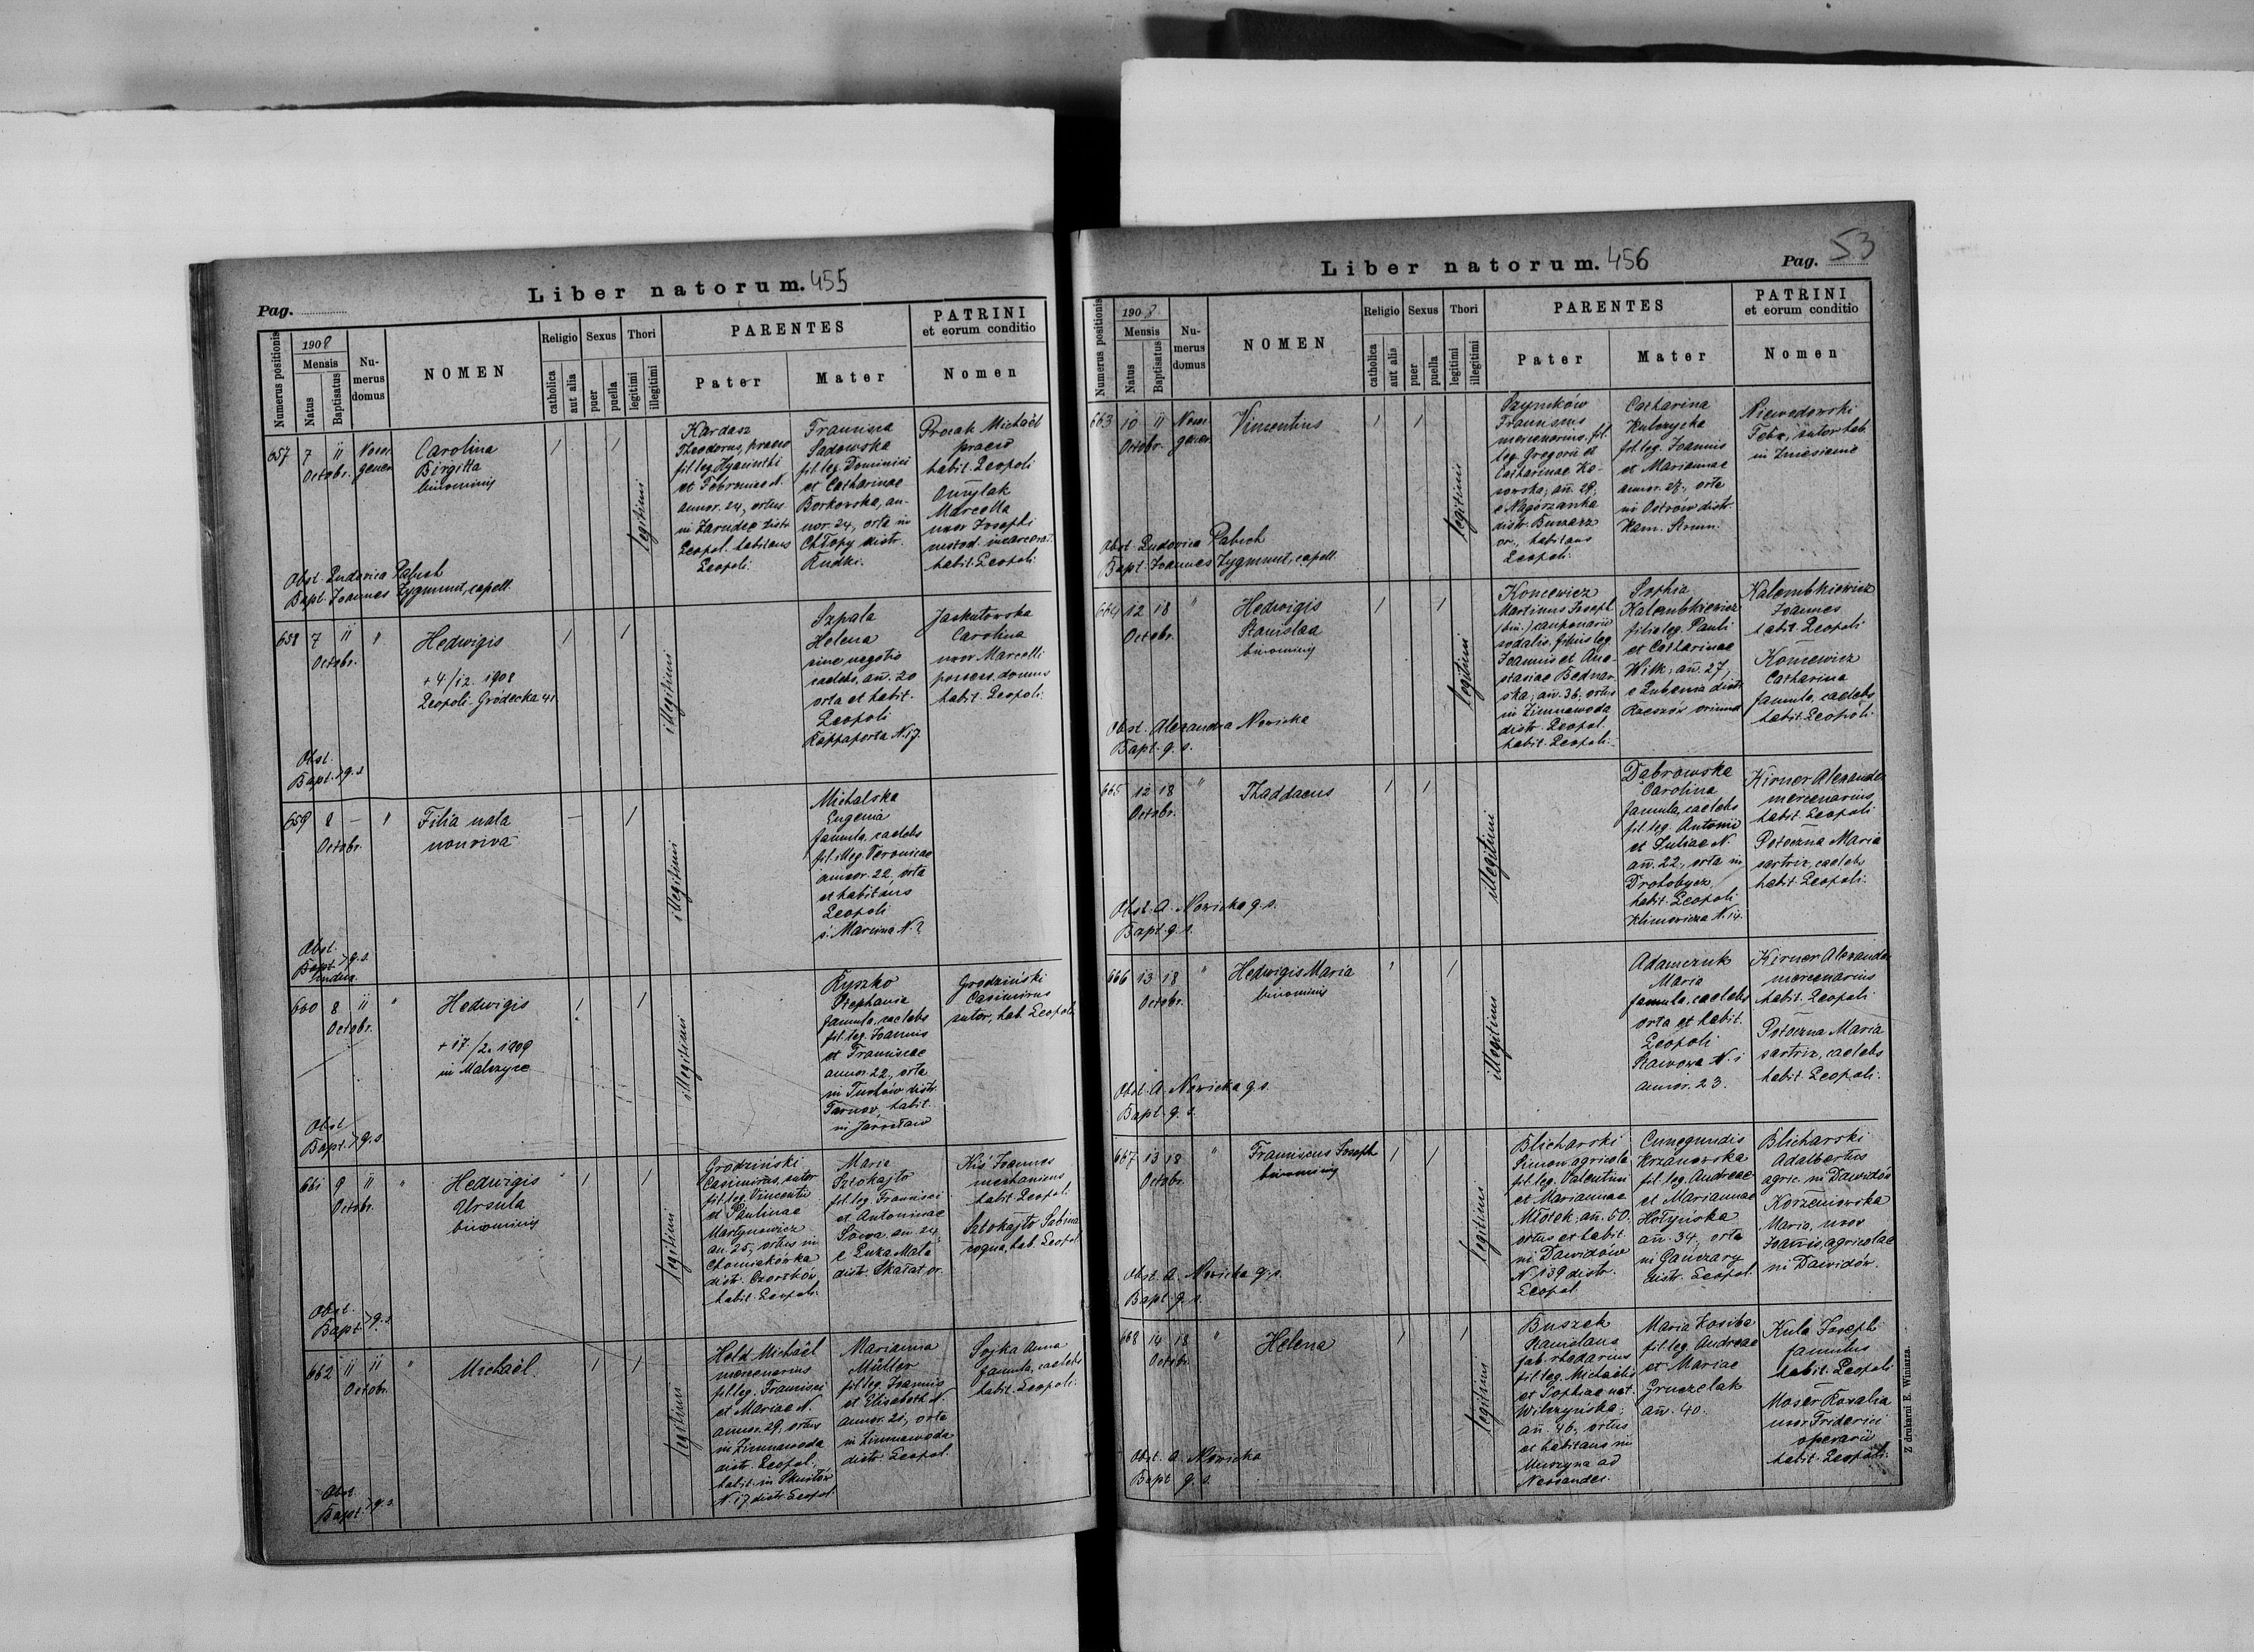 Liber natorum. 455
Pag.
Numerus positionis
1908
Mensis
Natus
Baptisatus
Numerus domus
NOMEN
Religio
catholica
aut alia
Sexus
puer
puella
Thori
legitimi
illegitimi
PARENTES
Pater
Mater
PATRINI
et eorum conditio
Nomen
657 7 11 Octobr.
Carolina
Birgitta
binominis
legitimi
Kardasz
Theodorus, praeco
fil. leg. Hyacinthi
et Febroniae N.
annor. 24, ortus
in Zarudce distr.
Leopol. habitans
Leopoli.
Francisca
Sadowska
fil. leg. Dominici
et Catharinae
Borkowska, an-
nor. 24, orta in
Chłopy distr.
Rudki.
Procak Michaël
praeco
habit. Leopoli
Marcella
uxor Josephi
habit. Leopoli.
Obst. Ludovica Pabich
Bapt. Joannes Zygmunt, capell.
658 7 11 "
Octobr.
Hedwigis
+ 4/12. 1908
Leopoli - Gródecka 41
illegitimi
Szpala
Helena
sine negotio
caelebs, an̄. 20
orta et habit.
Leopoli
Rappaporta N. 17.
Carolina
uxor Marcelli
possess. domus
habit. Leopoli.
Obst.
Bapt. > q. s.
659 8 - "
Octobr.
Filia nata
non viva
illegitimi
Michalska
Eugenia
famula, caelebs
fil. illeg. Veronicae
annor. 22, orta
et habitans
Leopoli
ś. Marcina N. 2
Obst.
Bapt. > q. s.
660 8 11 "
Octobr.
Hedwigis
+ 17./2. 1909
in Malczyce
illegitimi
Ryszko
Stephania
famula, caelebs
fil. leg. Joannis
et Franciscae
annor. 22, orta
in Tuchów distr.
Tarnov, habit.
in Jarosław
Grodziński
Casimirus
sutor, hab. Leopoli.
Obst.
Bapt. > q. s.
661 9 11 "
Octobr.
Hedwigis
Ursula
binominis
legitimi
Grodziński
Casimirus, sutor
fil. leg. Vincentii
et Paulinae
Martynowicz
an. 25, ortus in
Chomiakówka
distr. Czortków
habit. Leopoli.
Maria
Sztokajło
fil. leg. Francisci
et Antoninae
Sowa, an. 24,
e Łuka Mała
distr. Skałat or.
Kiś Joannes
mechanicus
habit. Leopoli
Sztokajło Sabina
coqua, hab. Leopol.
Obst.
Bapt. > q. s.
662 11 11 "
Octobr.
Michaël.
legitimi
Hold Michaël
mercenarius
fil. leg. Francisci
et Mariae N.
annor. 29, ortus
in Zimnawoda
distr. Leopol.,
habit. in Skniłów
N. 17 distr. Leopol.
Marianna
Müller
fil. leg. Joannis
et Elisabeth N.
annor. 21, orta
in Zimnawoda
distr. Leopol.
Sojka Anna
famula, caelebs
habit. Leopoli.
Obst.
Bapt. > q. s.
Liber natorum. 456
Pag. 53
Numerus positionis
1908
Mensis
Natus
Baptisatus
Numerus domus
NOMEN
Religio
catholica
aut alia
Sexus
puer
puella
Thori
legitimi
illegitimi
PARENTES
Pater
Mater
PATRINI
et eorum conditio
Nomen
663 10 11
Octobr.
Vincentius
legitimi
Franciscus
mercenarius, fil.
leg. Gregorii et
Catharinae Ko-
sowska, an̄. 29,
e Nagórzanka
distr. Buczacz
or., habitans
Leopoli.
Catharina
Kulczycka
fil. leg. Joannis
et Mariannae
annor. 27, orta
in Ostrów distr.
Kam. Strum.
Niewodowski
sutor hab.
in Zniesienie
Obst. Ludovica Pabich
Bapt. Joannes Zygmunt, capell.
664 12 18 "
Octobr.
Hedwigis
Stanislaa
binominis
legitimi
Koncewicz
Martinus Joseph
(bin.) cauponarii
sodalis, filius leg.
Joannis et Ana-
stasiae Bednar-
ska, an̄. 36, ortus
in Zimnawoda
distr. Leopol.
habit. Leopoli.
Sophia
Kalembkiewicz
filia leg. Pauli
et Catharinae
Wilk, an̄. 27,
e Lubenia distr.
Rzeszów oriund.
Kalembkiewicz
Joannes
habit. Leopoli
Koncewicz
Catharina
famula, caelebs
habit. Leopoli.
Obst. Alexandra Nowicka
Bapt. q. s.
665 12 18 "
Octobr.
Thaddaeus
illegitimi
Dąbrowska
Carolina
famula, caelebs
fil. leg. Antonii
et Juliae N.
an̄. 22, orta in
Drohobycz,
habit. Leopoli
Klimowicza N. 14.
Kirner Alexander
mercenarius
habit. Leopoli
Potoczna Maria
sartrix, caelebs
habit. Leopoli.
Obst. A. Nowicka q. s.
Bapt. q. s.
666 13 18 "
Octobr.
Hedwigis Maria
binominis
illegitimi
Adamczuk
Maria
famula, caelebs
orta et habit.
Leopoli
annor. 23.
Kirner Alexander
mercenarius
habit. Leopoli
Potoczna Maria
sartrix, caelebs
habit. Leopoli.
Obst. A. Nowicka q. s.
Bapt. q. s.
667 13 18 "
Octobr.
Franciscus Joseph
binominis
legitimi
Blicharski
Simon agricola
fil. leg. Valentini
et Mariannae
Młotek, an̄. 50,
ortus et habit.
in Dawidów
N. 139 distr.
Leopol.
Cunegundis
Krzanowska
fil. leg. Andreae
et Mariannae
Hołyńska
an̄. 34, orta
in Gańczary
distr. Leopol.
Blicharski
Adalbertus
agric. in Dawidów
Korzeniowska
Maria, uxor
Joannis, agricolae
in Dawidów.
Obst. A. Nowicka q. s.
Bapt. q. s.
668 14 18 "
Octobr.
Helena
legitimi
Buszek
Stanislaus
fab. rhedarius
fil. leg. Michaëlis
et Sophiae nat.
Wilczyńska,
an̄. 46, ortus
et habitans in
Muszyna ad
Neosandec.
Maria Kosiba
fil. leg. Andreae
et Mariae
Gruczelak
an̄. 40.
Kula Joseph
famulus
habit. Leopoli
Moser Rosalia
uxor Friderici
operarii
habit. Leopoli.
Obst. A. Nowicka
Bapt. q. s.
Z drukarni E. Winiarza.